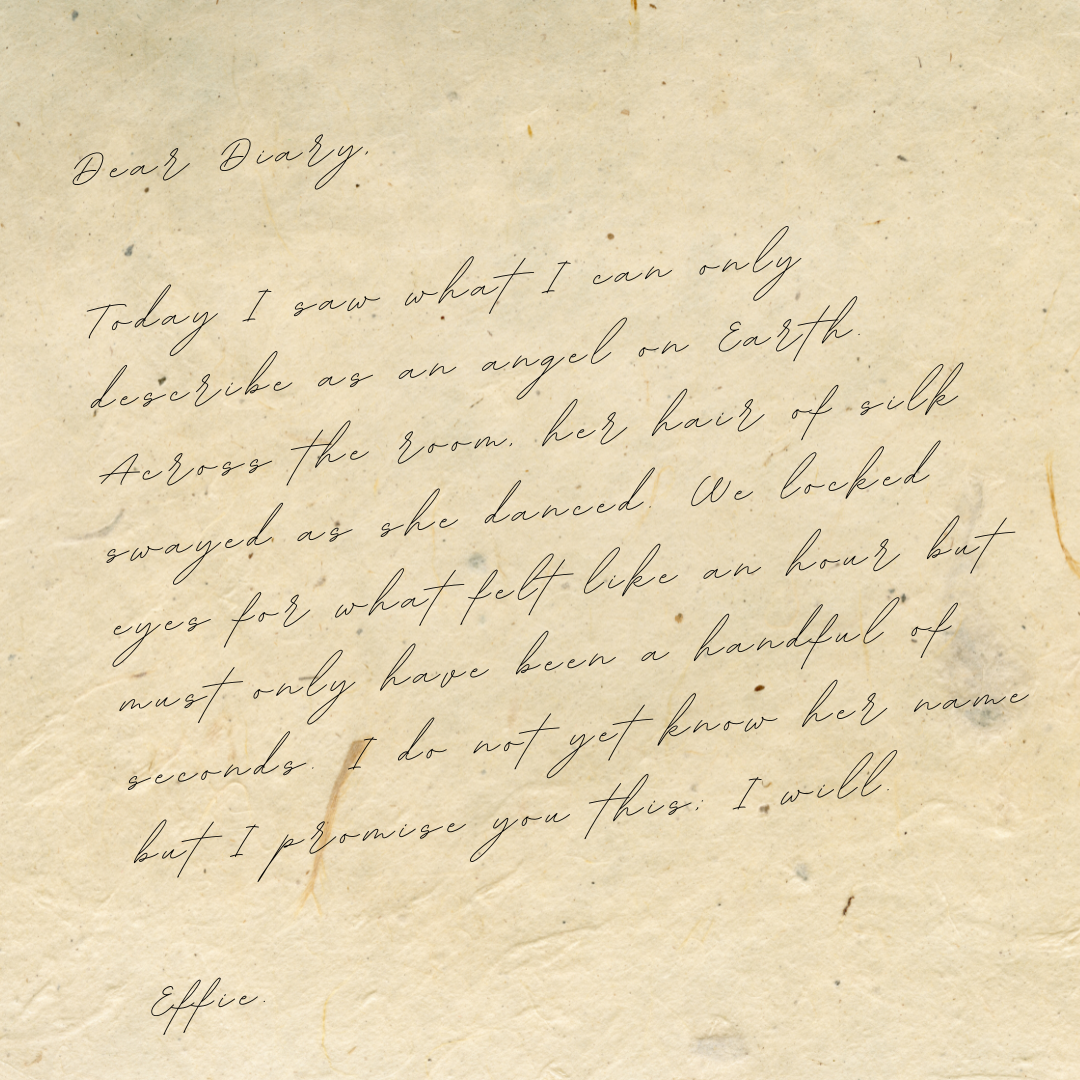 Dear Diary,
Today I saw what I can only
describe as an angel on Earth.
Across the room, her hair of silk
swayed as she danced. We locked
eyes for what felt like an hour but
must only have been a handful of
seconds. I do not yet know her name
but I promise you this; I will.
Effie.